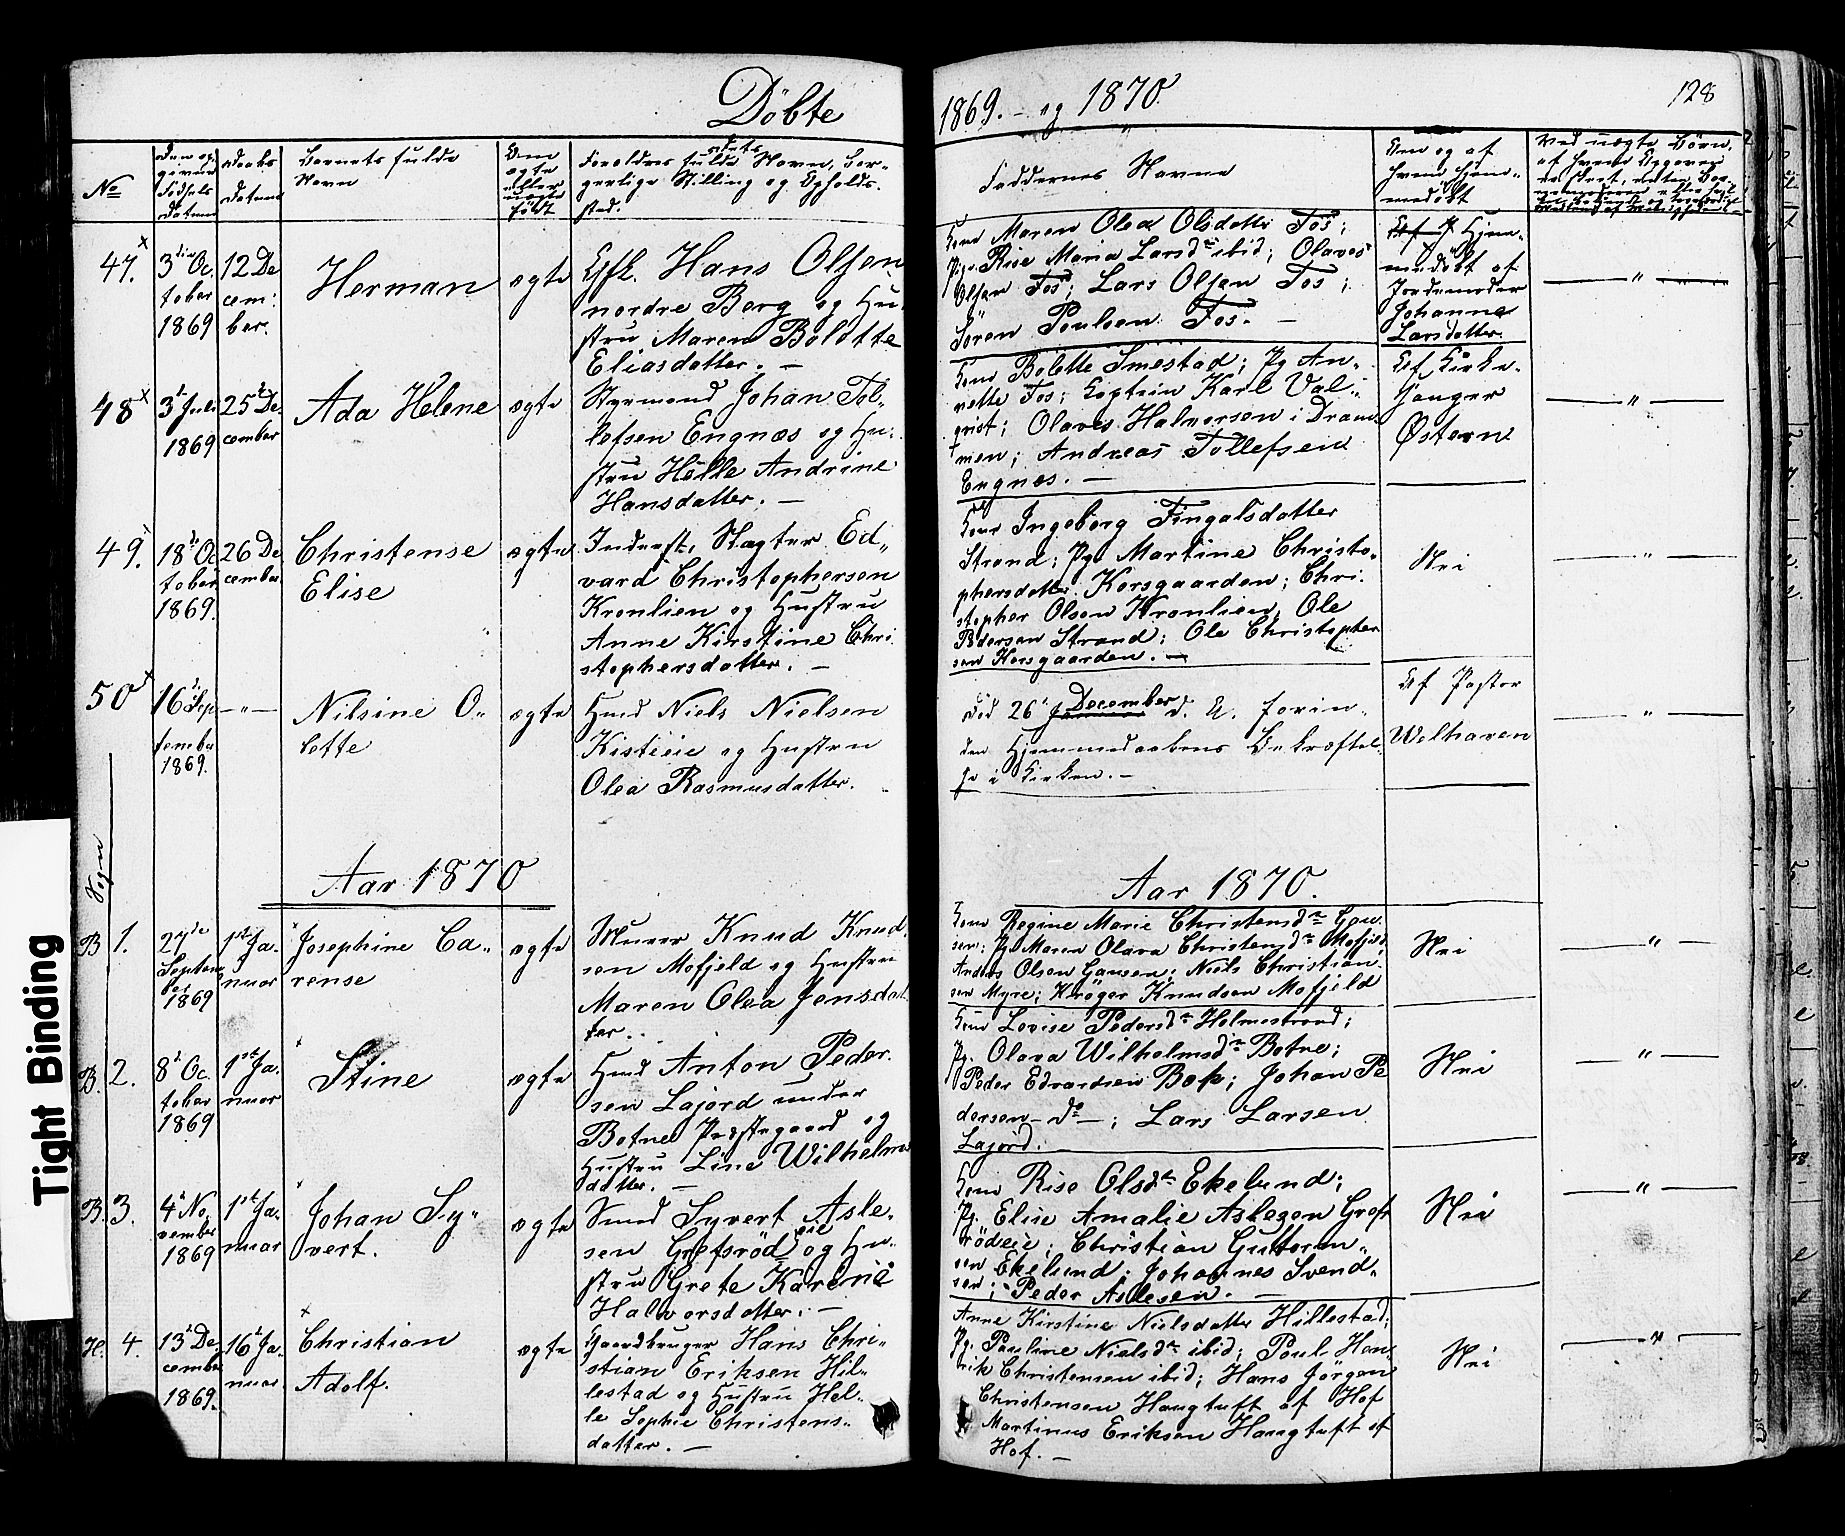 Døbte
1869. — og 1870.
128
No
Den op-
givne
Fødsels
Datum
Daabs
Datum
Barnets fulde
Navn
Om
ægte
eller
uægte
født
Forældres fulde Navn, bor-
gerlige Stilling og Opholds-
sted.
Faddernes Navne
Om og af
hvem hjem-
medøbt
47.
3die Oc
tober
1869
12 De
cem:
ber.
Herman
ægte
Gfbr. Hans Olsen
nordre Berg og Hu-
stru Maren Bolette
Eliasdatter. —
Kone Maren Olea Olsdatter Fos;
Pige Rise Maria Larsdr ibid; Olaves
Olsen Fos; Lars Olsen Fos;
Søren Poulsen Fos. —
Hjem-
medøbt af
Jordemoder
Johanne
Larsdatter.
— " —
48
3d Juli
1869
25d De-
cember
Ada Helene
ægte
Styrmand Johan Tol-
lefsen Engnæs og Hu-
stru Helle Andrine
Hansdatter. —
Kone Bolette Smestad; Pg An-
nette Fos; Captein Karl Val-
qvist; Olaves Halvorsen i Dram
men; Andreas Tollefsen
Engnæs. —
Af Kirke-
sanger
Østern
— " —
49.
18d Oc
tober
1869.
26 De
cember
Christense
Elise
ægte
Inderst, Slagter Ed-
vard Christophersen
Kronlien og Hustru
Anne Kirstine Chri
stophersdatter. —
Kone Ingeborg Fingalsdatter
Strand; Pg Martine Christo-
phersdatter Korsgaarden; Chri-
stopher Olsen Kronlien, Ole
Pedersen Strand; Ole Christopher
sen Korsgaarden. —
Nei
— " —
50
16d Sep
tember
1869.
— " —
Nilsine O-
lette
ægte
Hmd Niels Nielsen
Kisteeie og Hustru
Olea Rasmusdatter.
Død 26d December d. A. forin-
den Hjemmedaabens Bekræftel-
se i Kirken. —
Af Pastor
Welhaven
— " —
Sogn
Aar 1870
Aar 1870.
B 1.
27de
Septem
ber
1869
1ste Ja-
nuar
Josephine Ca-
rense
ægte
Murer Knud Knud
sen Mofjeld og Hustru
Maren Olea Jensdat
ter.
Kone Regine Marie Christensdr Gau
sen; Pg Maren Olava Christensdr Mofjeld
Anders Olsen Gausen; Niels Christian-
sen Myre; Krøger Knudsen Mofjeld
Nei
— " —
B. 2.
8d Oc
tober
1869
1ste Ja-
nuar
Stine
ægte
Hmd Anton Peder-
sen Lajord under
Botne Præstegaard og
Hustru Line Wilhelms
datter. —
Kone Lovise Pedersdr Holmestrand;
Pg. Olava Wilhelmsdr Botne;
Peder Edvardsen Bok; Johan Pe
dersen — do —; Lars Larsen
Lajord.
Nei
— " —
B. 3.
4d No-
vember
1869
1ste Ja-
nuar
Johan Sy-
vert.
ægte
Smed Syvert Asle-
sen Grefsrødeie og Hu-
stru Grete Karine
Halvorsdatter. —
Kone Rise Olsdr Ekelund;
Pg. Elise Amalie Aslesen Grefs
rødeie; Christian Guttorm-
sen Ekelund; Johannes Svend-
sen; Peder Aslesen. —
Nei
— " —
H. 4.
13d De-
cember
1869.
16d Ja-
nuar
Christian
Adolf.
ægte
Gaardbruger Hans Chri-
stian Eriksen Hil-
lestad og Hustru Hel-
le Sophie Christens-
datter. —
Anne Kirstine Nielsdatter Hillestad;
Pg. Pauline Nielsdr ibid; Poul Hen
rik Christensen ibid; Hans Jörgen
Christensen Haugtuft af Hof
Martinus Eriksen Haugtuft af
Hof. —
Nei
— " —
Tight Binding